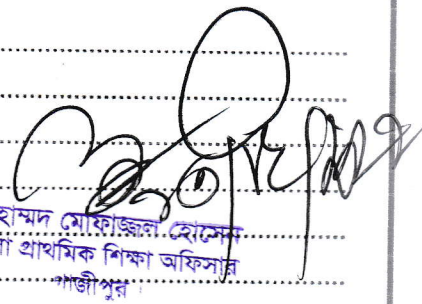 হাম্মদ মোফাজ্জল হোসেন
া প্রাথমিক শিক্ষা অফিসার
গাজীপুর